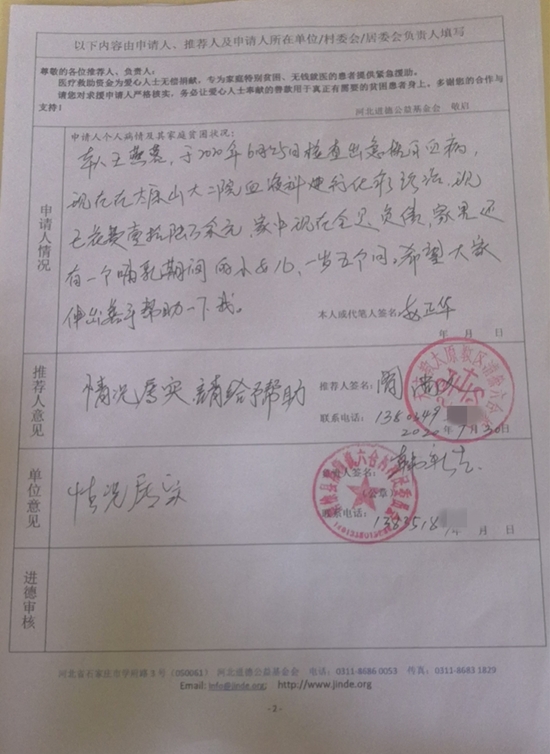 以下内容由申请人、推荐人及申请人所在单位/村委会/居委会负责人填写
尊敬的各位推荐人、负责人：
医疗救助资金为爱心人士无偿捐献，专为家庭特别贫困、无钱就医的患者提供紧急援助。
请您对求援申请人严格核实，务必让爱心人士奉献的善款用于真正有需要的贫困患者身上，多谢您的合作与
支持！
河北进德公益基金会 敬启
申请人情况
申请人个人病情及其家庭贫困状况：
本人王燕蓉，于2020年6月25日检查出急性白血病，
现在在太原山大二院血液科进行化疗治疗，现
已花费 万余元，家中现在全是负债，家里还
有一个哺乳期间 小女儿、一岁五个月。希望大家
伸出援手帮助一下我。
本人或代笔人签名：赵正华
年 月 日
推荐人意见
情况属实 請给予帮助
推荐人签名：
联系电话：
2020年7月30日
单位意见
情况属实
负责人签名：
（公章）
联系电话：
年 月 日
进德审核
河北省石家庄市学府路3号（050061） 河北进德公益基金会 电话：0311-8686 0053 传真：0311-8683 1829
Email: info@jinde.org; http://www.jinde.org
- 2 -